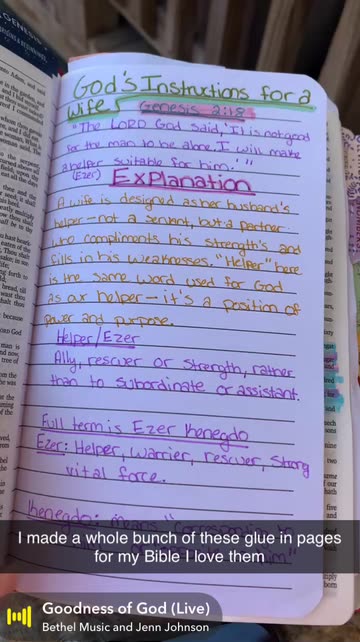 God's Instructions for a
Wife
Genesis 2:18
"The LORD God said, 'It is not good
for the man to be alone. I will make
a helper suitable for him.'"
(Ezer)
Explanation
A wife is designed as her husband's
helper - not a servant, but a partner
who compliments his strength's and
fills in his weaknesses. "Helper" here
is the same word used for God
as our helper - it's a position of
power and purpose.
Helper/Ezer
Ally, rescuer or strength, rather
than to subordinate or assistant.
Full term is Ezer Kenegdo
Ezer: Helper, warrier, rescuer, strong
vital force.
Kenegdo: means "corresponding to
I made a whole bunch of these glue in pages
for my Bible I love them
Goodness of God (Live)
Bethel Music and Jenn Johnson